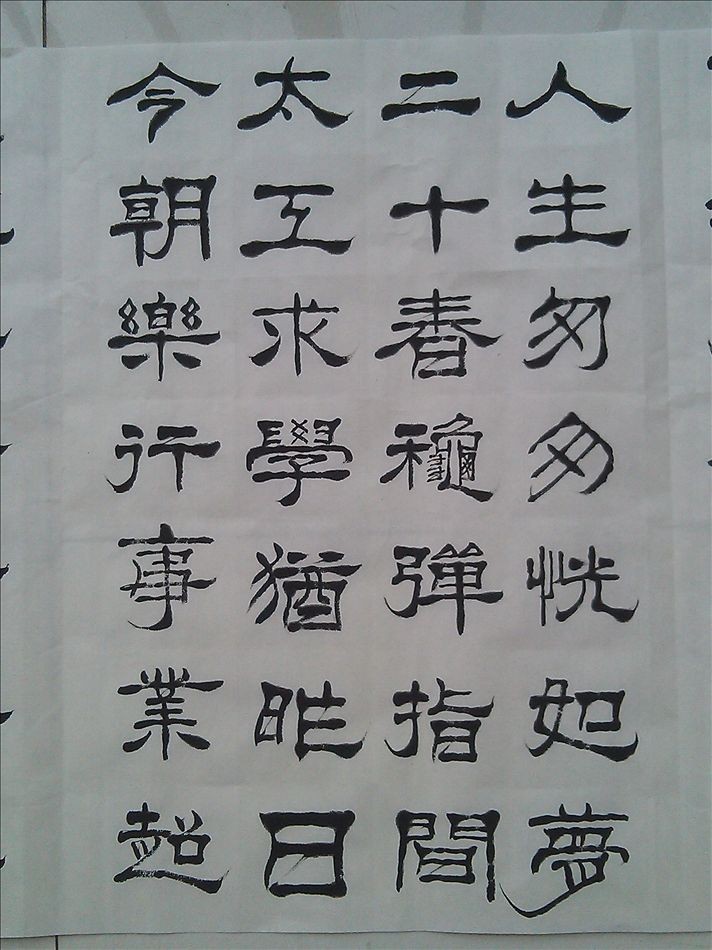 人生匆匆恍如夢
二十春龝彈指間
太工求學猶昨日
今朝樂行事業超